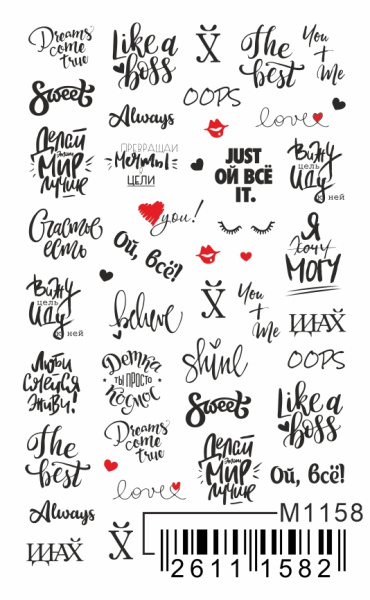 Dreams
come
true
Like a
boss
Х̆
The
best
You
+
Me
Sweet
OOPS
Always
love
Делай
Мир
лучше
ПРЕВРАЩАЙ
Мечты
В
ЦЕЛИ
JUST
ОЙ ВСЁ
IT.
Вижу
цель
Иду
к ней
you!
Счастье
есть
Ой, всё!
Я
Хочу
МОГУ
Вижу
цель
Иду
к ней
believe
Х̆
You
+
Me
ЩАХ̆
Люби
Смейся
Живи!
Детка
ТЫ ПРОСТО
Космос
shine
OOPS
Sweet
Like a
boss
The
best
Dreams
come
true
Делай
Мир
лучше
Ой, всё!
love
Always
ЩАХ̆
Х̆
M1158
2611 1582